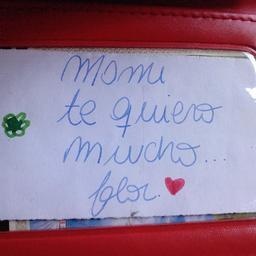 Momi
te quiero
mucho...
flor.